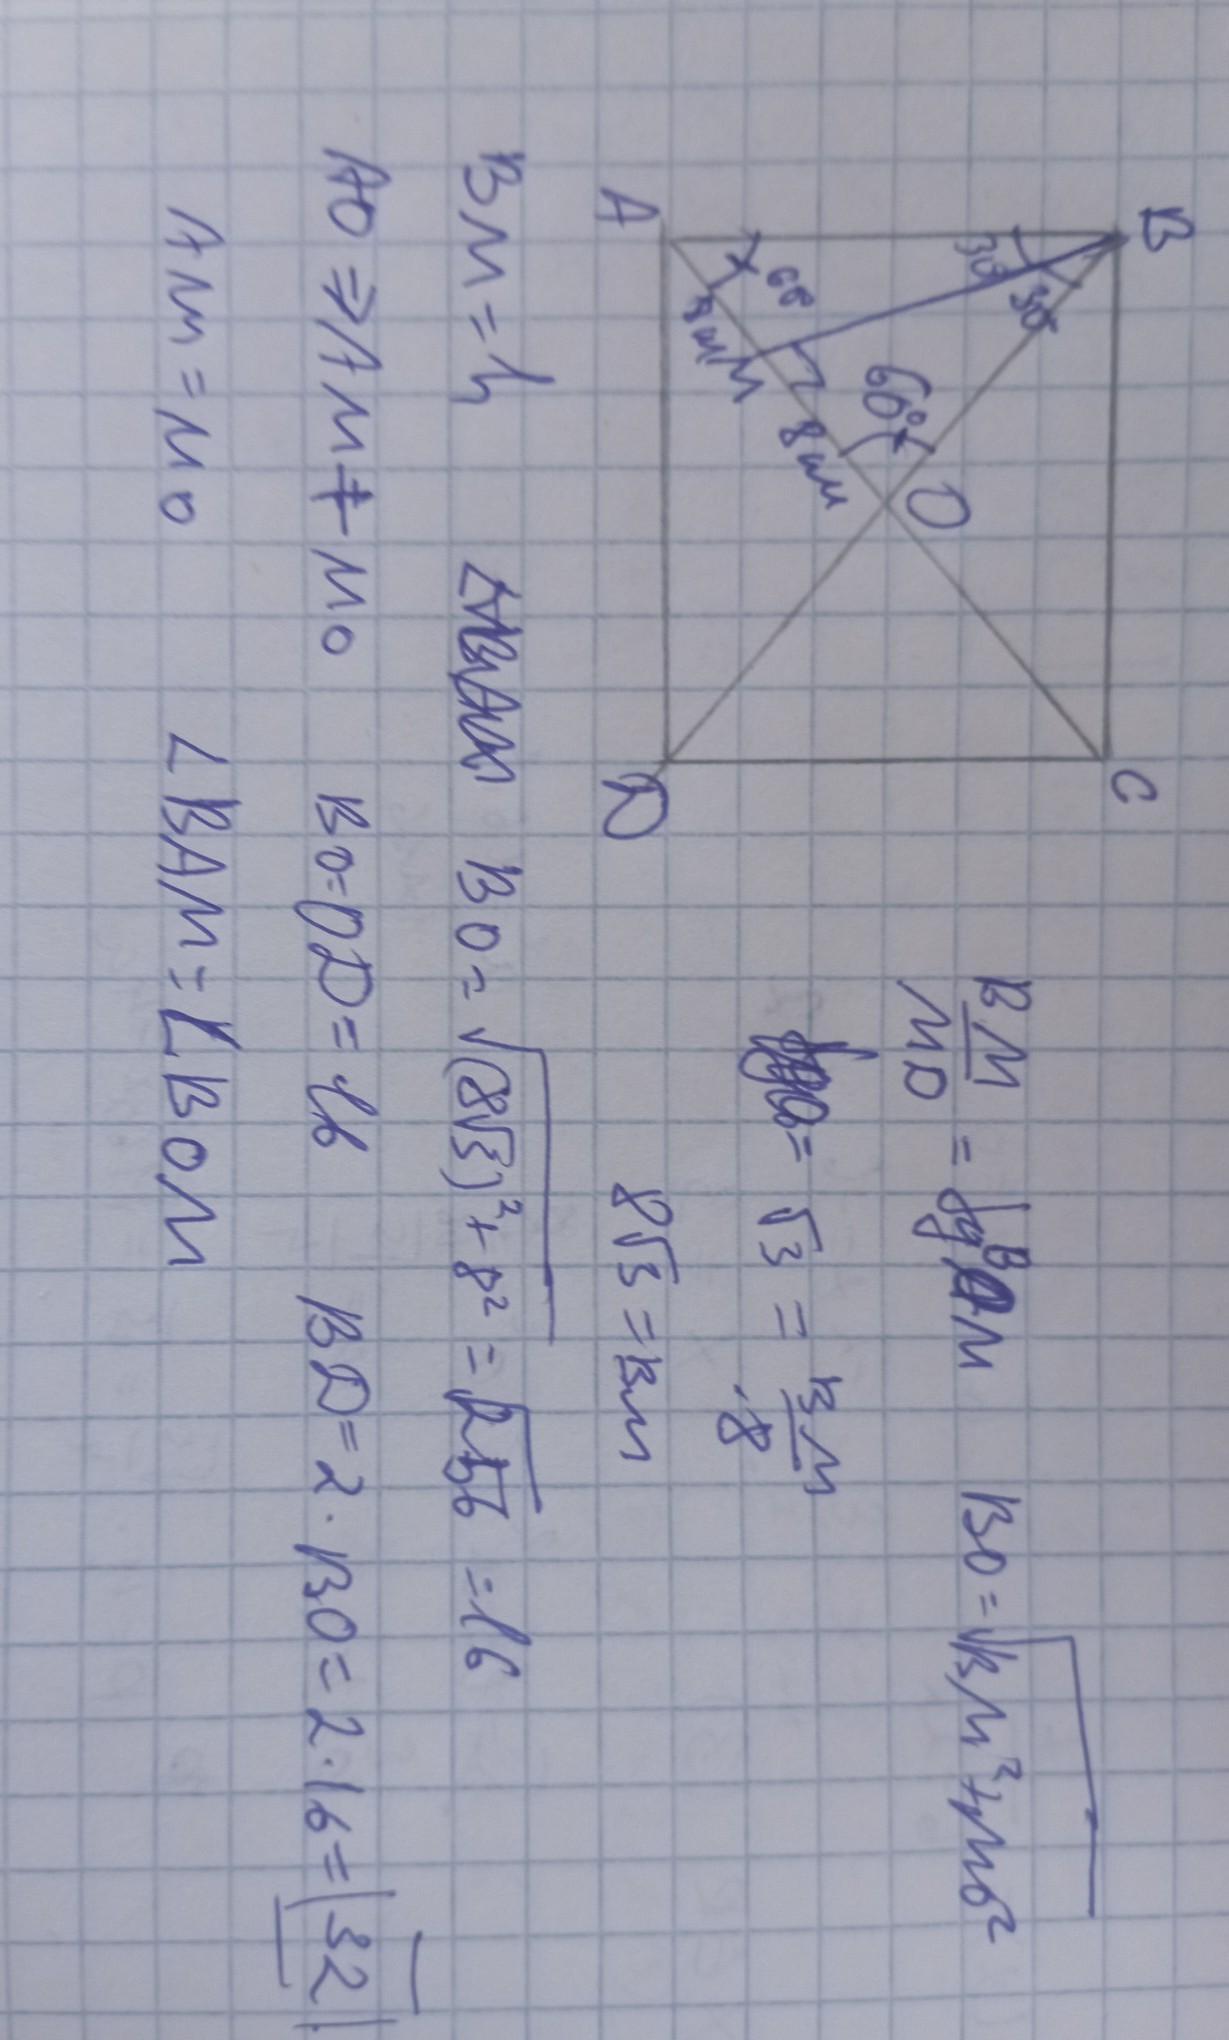 B C
30° 30°
60° 60°
O
8 см 8 см
M
A D
BM/MO = tg BOM BO = √BM²+MO²
= √3 = BM/8
8√3 = BM
BM = h BO = √(8√3)²+8² = √256 = 16
AO ⇒ AM + MO BO = OD = 16 BD = 2 · BO = 2 · 16 = 32
AM = MO ∠BAM = ∠BOM